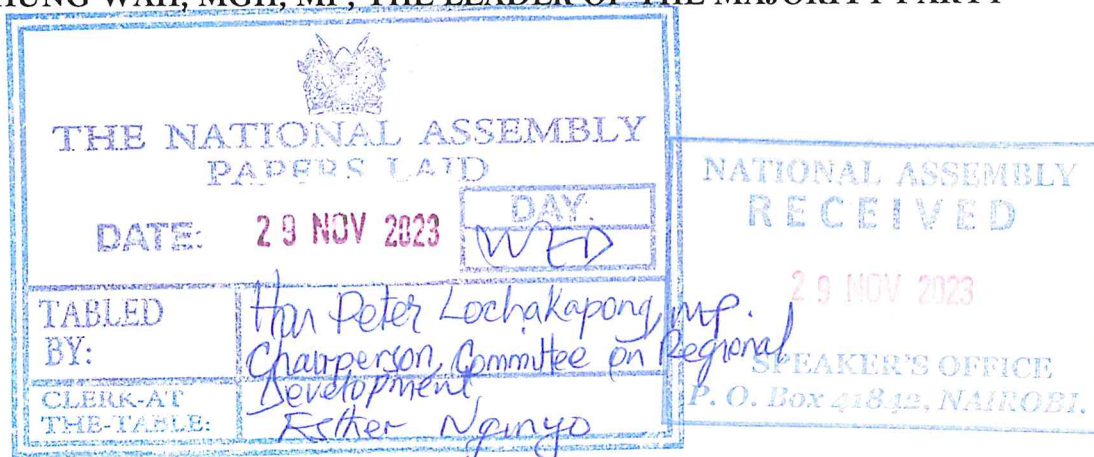 HUNG WAH, MGH, MP, THE LEADER OF THE MAJORITY PARTY
THE NATIONAL ASSEMBLY
PAPERS LAID
DATE: 29 NOV 2023
DAY.
WED
TABLED
BY:
Hon Peter Lochakapong, MP.
Chairperson, Committee on Regional
Development,
CLERK-AT
THE-TABLE:
Esther Nginyo
NATIONAL ASSEMBLY
RECEIVED
29 NOV 2023
SPEAKER'S OFFICE
P. O. Box 41842, NAIROBI.